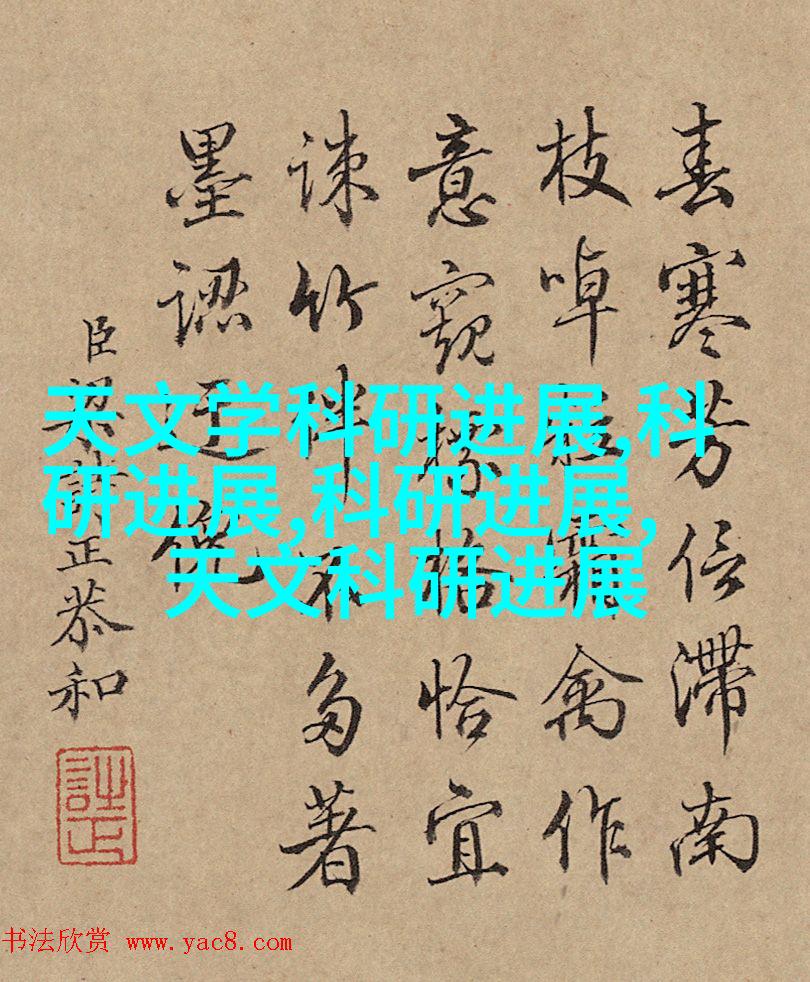 春寒芳信滞南
枝啅禽作
意窺格恰宜
竹伴不多著
墨認
臣梁詩正恭和
天文学科研进展,科
研进展,科研进展,
天文科研进展
书法欣赏 www.yac8.com